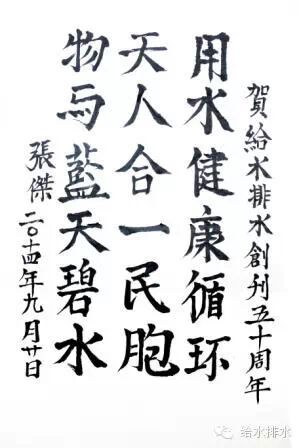 賀給水排水創刊五十周年
用水健康循环
天人合一民胞
物与藍天碧水
張傑
二〇一四年九月廿日
给水排水